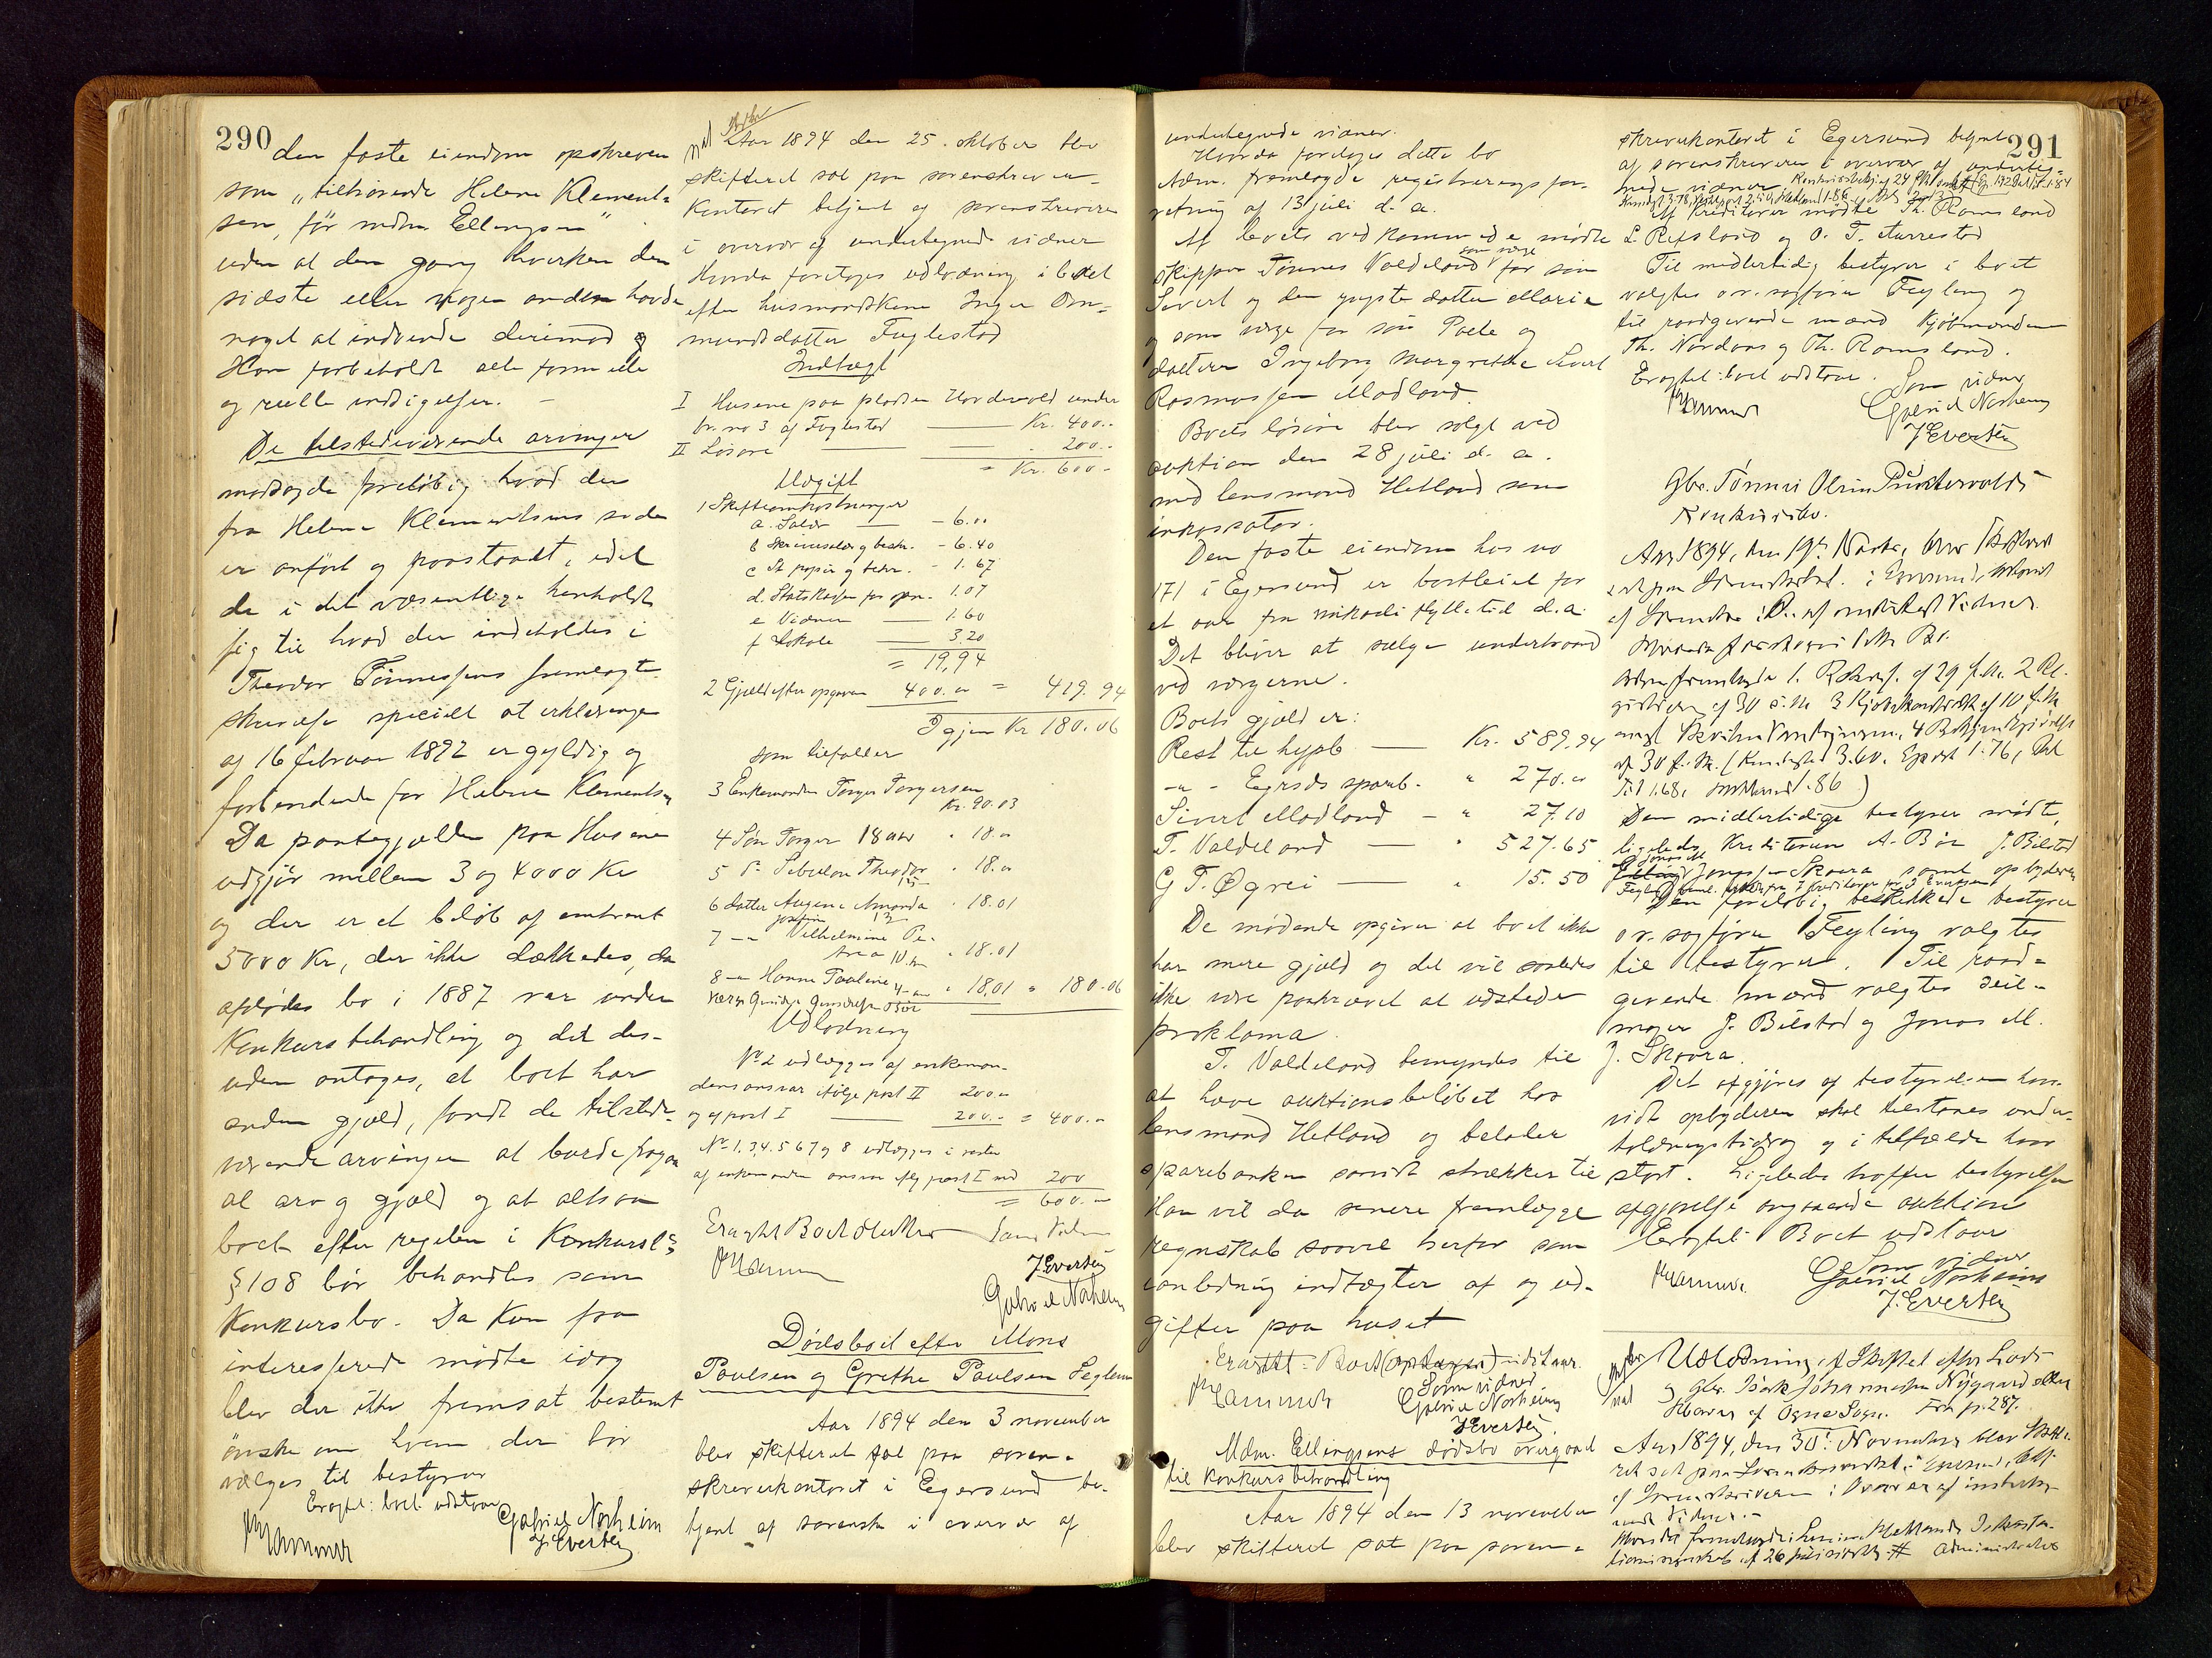 290
den faste eiendom opskreven
som "tilhørende Helene Klement-
sen, før mdm. Ellingsen"
uden at den gang hverken den
sidste eller nogen anden havde
noget at indvende derimod og
Han forbeholdt alle formelle
og reelle indsigelser. -
De tilstedeværende arvinger
modsagde foreløbig hvad der
fra Helene Klementsens side
er anført og paastaaet, idet
de i det væsentlige henholdt
sig til hvad der indeholdes i
Theodor Tønnessens fremlagte
skrivelse specielt at erklæringen
af 16 februar 1892 er gyldig og
forbindende for Helene Klementsen
Da pantegjælden paa Husene
udgjør mellem 3 og 4000 Kr
og der er et beløb af omtrent
5000 Kr, der ikke dækkedes, da
afdødes bo i 1887 var under
Konkursbehandling og det des-
uden antages, at boet har
anden gjæld, fandt de tilstede-
værende arvinger at burde fragaa
al arv og gjæld og at altsaa
boet efter regelen i Konkursl's
§ 108 bør behandles som
Konkursbo. Da kun faa
interesserede mødte idag
blev der ikke fremsat bestemt
ønske om hvem der bør
vælges til bestyrer
Eragtet: boet udstaar
Gabriel Norheim
J. Evertsen
Aar 1894 den 25. oktober blev
skifteret sat paa sorenskriver-
kontoret betjent af sorenskriveren
i overvær af undertegnede vidner
Hvorda foretoges udlodning i boet
efter husmandskone Inger Om-
mundsdatter Fuglestad
Indtægt
I Husene paa pladsen under
br. no 3 af Fuglestad — Kr. 400..
II Løsøre — 200..
= Kr. 600 -
Udgift
1 Skifteomkostninger
a. Salær — - 6.00
b Skriversalær og beskr. - 6.40
c St. papir og beskr. - 1.67
d. Statskassen for opn. - 1.07
e Vidner — 1.60
f Lokale — 3.20
= 19,94
2 Gjæld efter opgaven 400.00 = 419.94
Igjen Kr 180.06
som tilfalder
3 Enkemanden Torger Torgersen
Kr. 90.03
4 Søn Torger 18 aar " 18.00
5 Do Sibulon Theodor " 18.00
6 datter Augene Amanda " 18.01
7 -" Vilhelmine Pe-
" 18.01
8 -" Hanne Pauline " 18,01 = 180.06
Udlodning
No 2 udlægges af enkeman-
dens ansvar ifølge post II 200.00
og af post I — 200.- = 400.-
No 1,3,4,5 6 7 og 8 udlægges i resten
af enkemanden ansvar post I med 200
= 600.-
Eragtet Boet sluttet
J Evertsen
Gabriel Norheim
Dødsboet efter Mons
Poulsen og Grethe Poulsen Seglem
Aar 1894 den 3 november
blev skifteret sat paa soren-
skriverkontoret i Egersund be-
tjent af sorenskr i overvær af
undertegnede vidner.
Hvorda foretoges dette bo
Adm. fremlagde registreringsfor-
retning af 13 juli d. a.
Af boets vedkommende mødte
skipper Tønnes Valdeland som værge for søn
Sivert og den yngste datter Marie
og som værge for søn Paele og
datteren Ingeborg Margrethe Sivert
Rasmussen Modland.
Boets løsøre blev solgt ved
auktion den 28 juli d. a.
med lensmand Hetland som
inkassator.
Den faste eiendom hus no
171 i Egersund er bortleiet for
et aar fra mikaeli flyttetid d.a.
Det bliver at sælge underhaand
ved værgerne.
Boets gjæld er:
Rest til hypb — Kr. 589.94
-"- Egrsds sparb. " 270.00
Sivert Modland - " 27.10
T. Valdeland — " 527.65
G T. Øgrei — " 15.50
De mødende opgiver at boet ikke
har mere gjæld og det vil saaledes
ikke være paakrævet at udstede
proklama
T. Valdeland bemyndes til
at hæve auktionsbeløbet hos
lensmand Hetland og betaler
sparebanken saavidt strækker til
Han vil da senere fremlægge
regnskab saavel herfor som
anledning indtægter af og ud-
gifter paa huset
Eragtet: Boet udstaar.
Som vidner
Gabriel Norheim
J Evertsen
Mdm. Ellingsens dødsbo overgaaet
til konkursbehandling
Aar 1894 den 13 november
blev skifteret sat paa soren-
291
skriverkontoret i Egersund betjent
af sorenskriveren i overvær af underteg-
nede vidner
Af Kreditorer mødte Th. Ramsland
L. Refsland og O. T. Aarrestad
Til midlertidig bestyrer i boet
valgtes o.r. sagfører Feyling og
til raadgivende mænd kjøbmændene
Th. Nordaas og Th. Ramsland.
Eragtet: boet udstaar.
Som vidner
Gabriel Norheim
J Evertsen
Gbr. Tønnes Olsen Puntervolds
Konkursbo.
Aar 1894, den 19de Novbr, blev Skifteret
af Sorenskr i Ov. af undertegt Vidner.
Den midlertidige bestyrer mødte,
ligeledes Kreditorerne A. Bøe J. Bilstad
Jonassen Skaara samt opbyderen
Den foreløbig beskikkede bestyrer
o.r. sagfører Feyling valgtes
til bestyrer. Til raad-
givende mænd valgtes seil-
mager J. Bilstad og Jonas M.
J. Skaara.
Det afgjøres af bestyrelsen hvor-
vidt opbyderen skal tilstaaes under-
holdningsbidrag og i tilfælde hvor
stort. Ligeledes træffer bestyrelsen
afgjørelse angaaende auktion
Eragtet: Boet udstaar
Som vidner
Gabriel Norheim
J. Evertsen
Udlodning i Skiftet efter
Gbr. Isak Johannesen Nygaard eller
Hæver af Ogne Sogn. Fra p. 287.
Aar 1894, den 30te November blev Skifte-
af Sorenskriveren i Overvær af underteg-
nede Vidner. -
af 26 Administrator